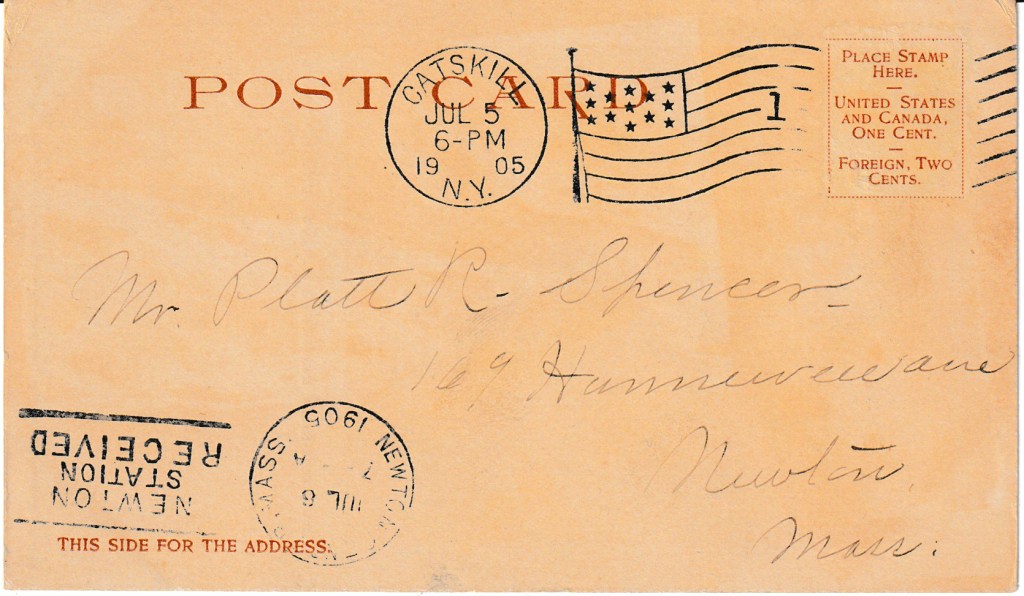 POST CARD
CATSKILL
JUL 5
6-PM
19 05
N.Y.
1
PLACE STAMP
HERE.
UNITED STATES
AND CANADA,
ONE CENT.
FOREIGN, TWO
CENTS.
Mr. Platt R. Spencer
169 Hunnewell ave
Newton
Mass.
NEWTON
STATION
RECEIVED
NEWTON
MASS.
JUL 6
1905
THIS SIDE FOR THE ADDRESS.